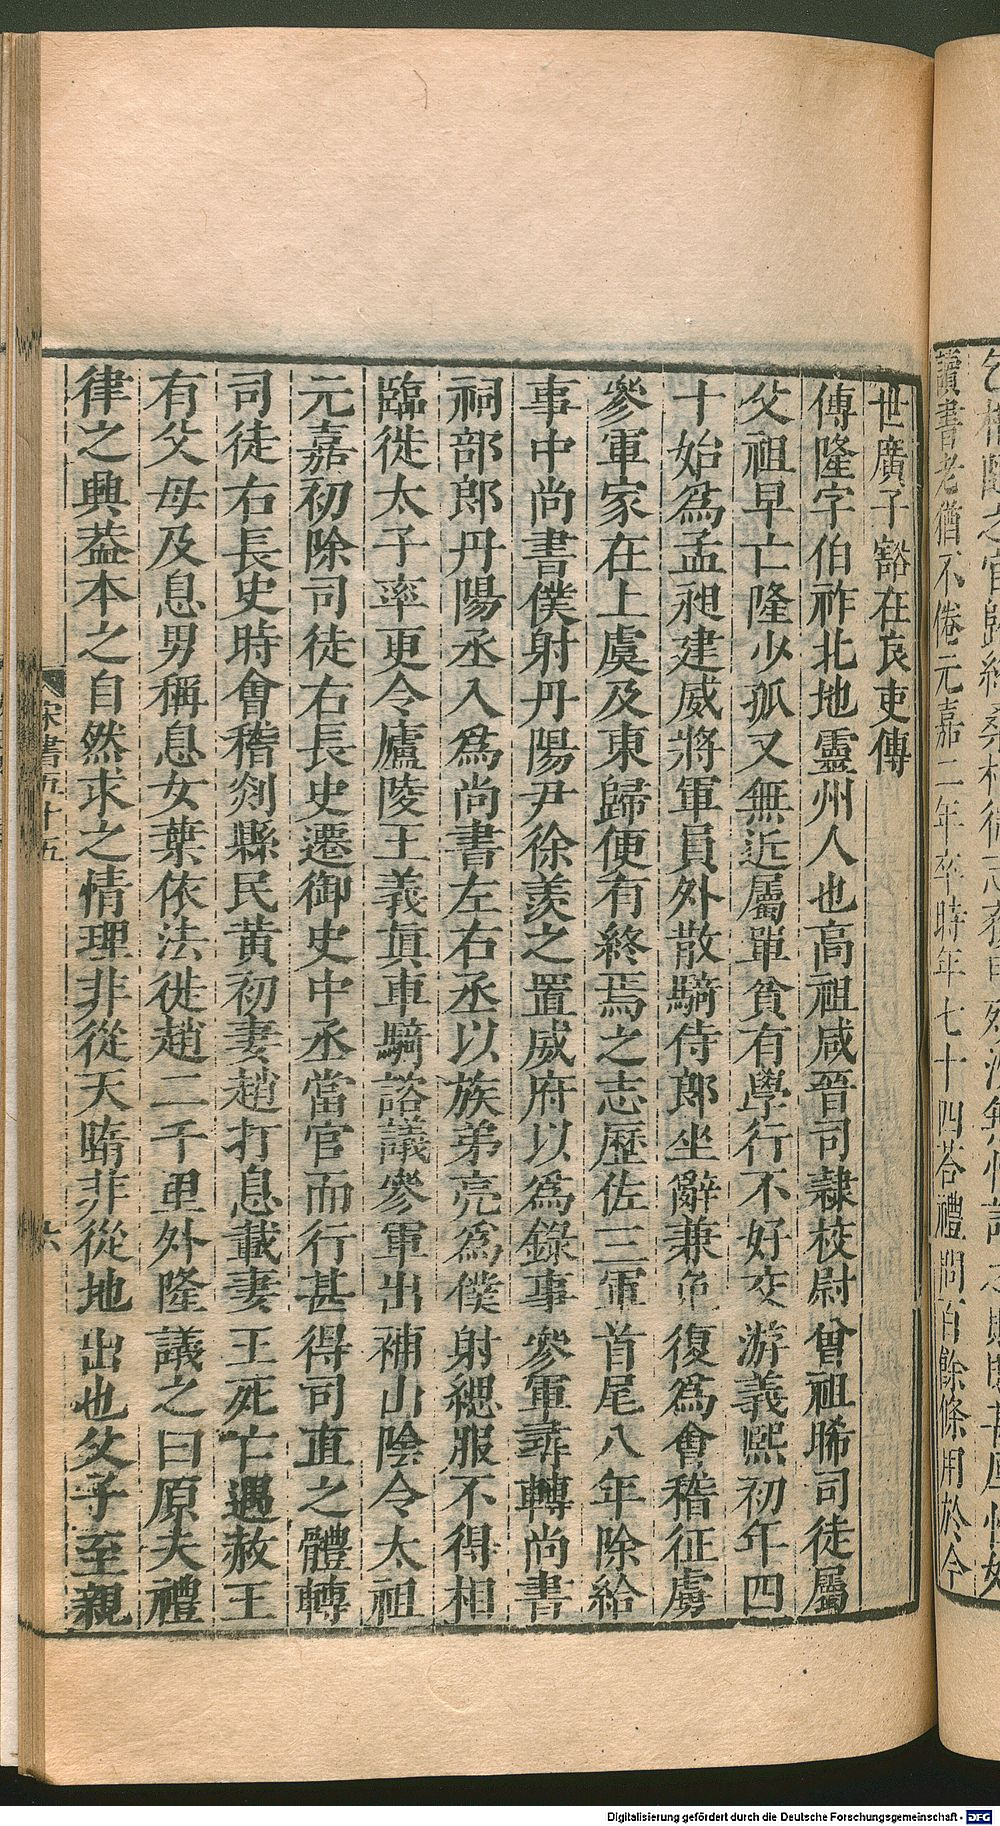 讀書老猶不倦元嘉二年卒時年七十四荅禮問百餘條用於今
世廣子豁在良吏傳
傅隆字伯祚北地靈州人也高祖咸晉司隸校尉曾祖晞司徒屬
父祖早亡隆少孤又無近屬單貧有學行不好交游義熙初年四
十始爲孟昶建威將軍員外散騎侍郎坐辭兼免復爲會稽征虜
參軍家在上虞及東歸便有終焉之志歷佐三軍首尾八年除給
事中尚書僕射丹陽尹徐羨之置威府以爲錄事參軍尋轉尚書
祠部郎丹陽丞入爲尚書左右丞以族弟亮爲僕射緦服不得相
臨徙太子率更令廬陵王義真車騎諮議參軍出補山陰令太祖
元嘉初除司徒右長史遷御史中丞當官而行甚得司直之體轉
司徒右長史時會稽剡縣民黃初妻趙打息載妻王死亡遇赦王
有父母及息男稱息女葉依法徙趙二千里外隆議之曰原夫禮
律之興葢本之自然求之情理非從天墮非從地出也父子至親
宋書五十五
六
Digitalisierung gefördert durch die Deutsche Forschungsgemeinschaft - DFG